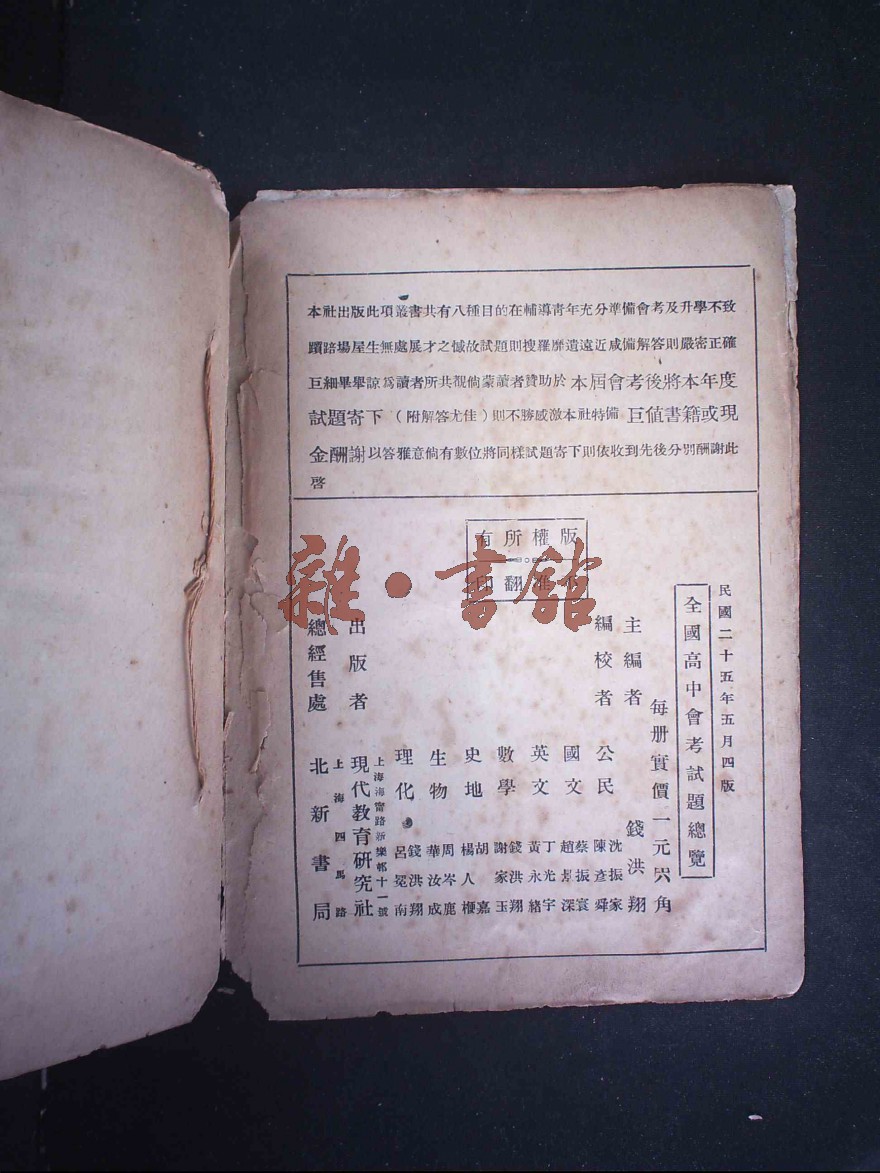 本社出版此項叢書共有八種目的在輔導青年充分準備會考及升學不致
躓踣場屋生無處展才之憾故試題則搜羅靡遺遠近咸備解答則嚴密正確
巨細畢舉諒爲讀者所共覩倘蒙讀者贊助於本屆會考後將本年度
試題寄下(附解答尤佳)則不勝感激本社特備巨値書籍或現
金酬謝以答雅意倘有數位將同樣試題寄下則依收到先後分別酬謝此
啓
版權所有
翻印
雜·書館
民國二十五年五月四版
全國高中會考試題總覽
每册實價一元六角
主編者 錢洪翔
編校者
公民 沈振家 陳彥舜
國文 蔡振寰 趙景深
英文 丁光宇 黃永緒
數學 錢洪翔 謝家玉
史地 胡嘉 楊人楩
生物 周岑鹿 華汝成
理化 錢洪翔 呂冕南
出版者 現代教育研究社
上海海甯路新樂邨十一號
總經售處 北新書局
上海四馬路